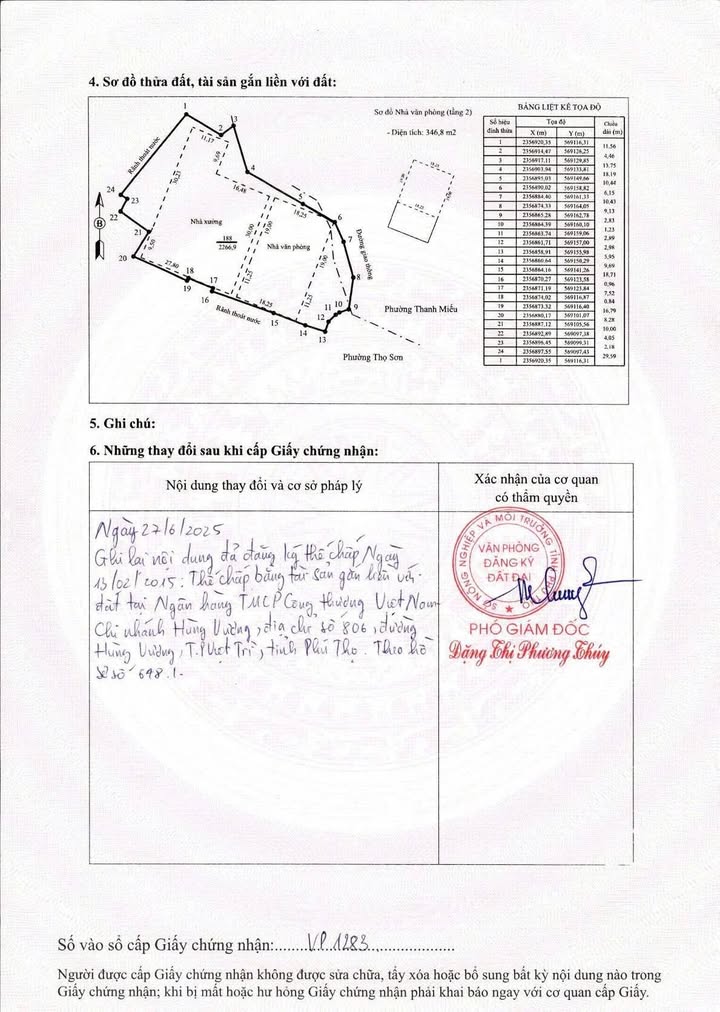 4. Sơ đồ thửa đất, tài sản gắn liền với đất:
Sơ đồ Nhà văn phòng (tầng 2)
- Diện tích: 346,8 m2
BẢNG LIỆT KÊ TỌA ĐỘ
Số hiệu đỉnh thửa | Tọa độ X (m) | Y (m) | Chiều dài (m)
1 2356920,35 569116,31
11,56
2 2356914,47 569126,25
4,46
3 2356917,11 569129,85
13,75
4 2356903,94 569133,81
18,19
5 2356895,03 569149,66
10,44
6 2356890,02 569158,82
6,15
7 2356884,40 569161,33
10,43
8 2356874,33 569164,05
9,13
9 2356865,28 569162,78
2,83
10 2356864,39 569160,10
1,23
11 2356863,74 569159,06
2,89
12 2356861,71 569157,00
2,98
13 2356858,91 569155,98
5,95
14 2356860,64 569150,29
9,69
15 2356864,16 569141,26
18,71
16 2356870,27 569123,58
0,96
17 2356871,19 569123,84
7,52
18 2356874,02 569116,87
0,84
19 2356873,32 569116,40
16,79
20 2356880,17 569101,07
8.28
21 2356887,12 569105,56
10,00
22 2356892,89 569097,38
4,05
23 2356896,45 569099,31
2,18
24 2356897,55 569097,43
29,59
1 2356920,35 569116,31
1
2
3
4
5
6
7
8
9
10
11
12
13
14
15
16
17
18
19
20
21
22
23
24
Rãnh thoát nước
11,17
9,69
30,21
16,48
18,25
Nhà xưởng
188
2266,9
30,00
19,00
Nhà văn phòng
19,00
Đường giao thông
B
9,50
27,80
11,25
11,25
18,25
Rãnh thoát nước
18,25
18,25
Phường Thanh Miếu
Phường Thọ Sơn
5. Ghi chú:
6. Những thay đổi sau khi cấp Giấy chứng nhận:
Nội dung thay đổi và cơ sở pháp lý
Xác nhận của cơ quan
có thẩm quyền
Ngày 27/6/2025
Ghi lại nội dung đã đăng ký thế chấp Ngày
13/02/2015: Thế chấp bằng tài sản gắn liền với
đất tại Ngân hàng TMCP Công thương Việt Nam
Chi nhánh Hùng Vương, địa chỉ số 806, đường
Hùng Vương, T.P Việt Trì, tỉnh Phú Thọ. Theo hồ
sơ số 698.1.
SỞ NÔNG NGHIỆP VÀ MÔI TRƯỜNG TỈNH PHÚ THỌ
VĂN PHÒNG
ĐĂNG KÝ
ĐẤT ĐAI
PHÓ GIÁM ĐỐC
Đặng Thị Phương Thúy
Số vào sổ cấp Giấy chứng nhận:.......VP 1283......................
Người được cấp Giấy chứng nhận không được sửa chữa, tẩy xóa hoặc bổ sung bất kỳ nội dung nào trong
Giấy chứng nhận; khi bị mất hoặc hư hỏng Giấy chứng nhận phải khai báo ngay với cơ quan cấp Giấy.